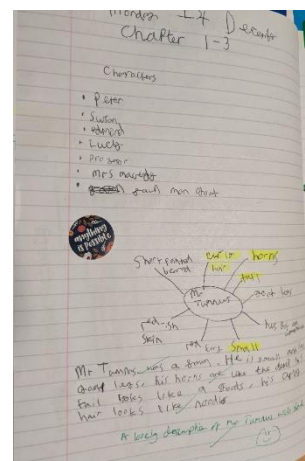 Monday 14 Decemb
Chapter 1-3
Characters
• Peter
• Susan
• Edmund
• Lucy
• Professor
• Mrs macready
anything
is possible
Short pointed
beard
curly
hair
horns
tail
Mr
Tumnus
goat legs
has got an
red-ish
skin
red
Small
Mr Tumnus was a faun. He is small and
goat legs. his horns are like the devil
tail looks like a his
hair looks like noodle
A lovely description of Mr Tumnus